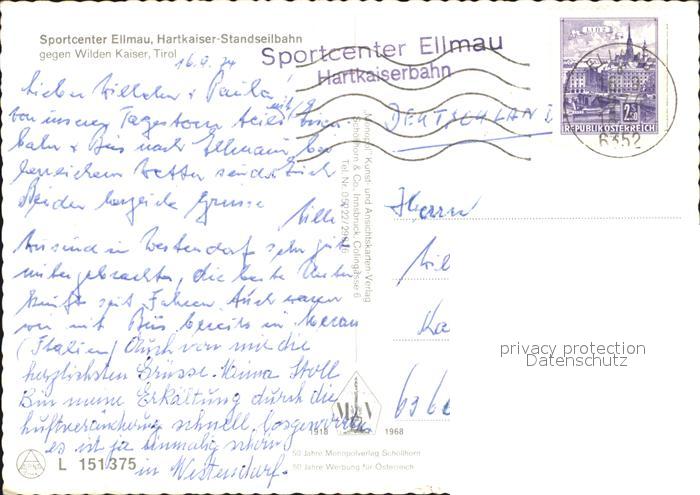 Sportcenter Ellmau, Hartkaiser-Standseilbahn
gegen Wilden Kaiser, Tirol
16.9.74
Sportcenter Ellmau
Hartkaiserbahn
LINZ
2.50
REPUBLIK ÖSTERREICH
6352
DEUTSCHLAND
Lieber Wilhelm & Paula!
von unserer Tagestour mit
bahn & Bus nach Ellmau bei
herrlichem Wetter sendet Dir
Beiden herzliche Grüsse
Willi
Wir sind in Westendorf sehr gut
untergebracht, die beste Unter
kunft seit Jahren. Auch waren
wir mit Bus bereits in Meran
(Italien) Auch von mir die
herzlichsten Grüsse. Minna Stoll
Bin meine Erkältung durch die
Luftveränderung schnell losgeworden
es ist ja einmalig schön
in Westendorf.
Herrn
Wil
Ka
Monopol-Kunst- und Ansichtskarten-Verlag
Schöllhorn & Co., Innsbruck, Colingasse 6
Tel. Nr. 05222/29
1918 1968
50 Jahre Monopolverlag Schöllhorn
50 Jahre Werbung für Österreich
L 151375
privacy protection
Datenschutz